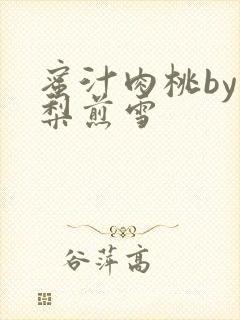 蜜汁肉桃by
梨煎雪
谷萍高